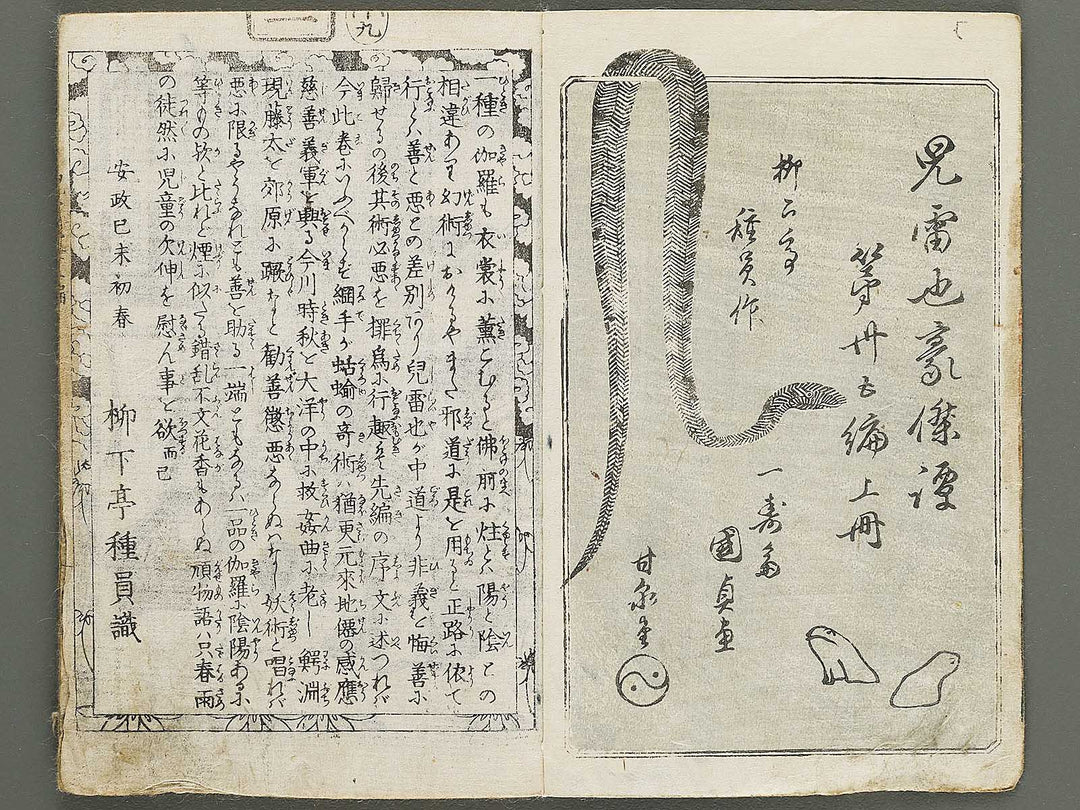 児雷也豪傑譚
第卅五編上冊
柳下亭
種員作
一寿斎
國貞画
甘泉堂
一種の伽羅も衣裳に薫こむると佛前に炷と陽と陰との
相違あり幻術におけるやまた邪道に是を用ると正路に依て
行とハ善と悪との差別あり兒雷也が中道より非義を悔善に
歸せるの後其術必悪を擇為に行趣を先編の序文に述つれバ
今此巻にいふべからず綱手が蛞蝓の奇術ハ猶更元來地僊の感應
慈善義軍を與る今川時秋を大洋の中に救姦曲に老し鰐淵
現藤太を郊原に蹶など勧善懲悪ならぬハなし妖術と唱れバ
悪に限るやうなれども善を助る一端ともなるハ一品の伽羅に陰陽あるに
等もの歟と比れど煙に似たる錯乱不文花香もあらぬ頑物語ハ只春雨
の徒然に児童の欠伸を慰ん事を欲而已
安政己未初春
柳下亭種員識
九